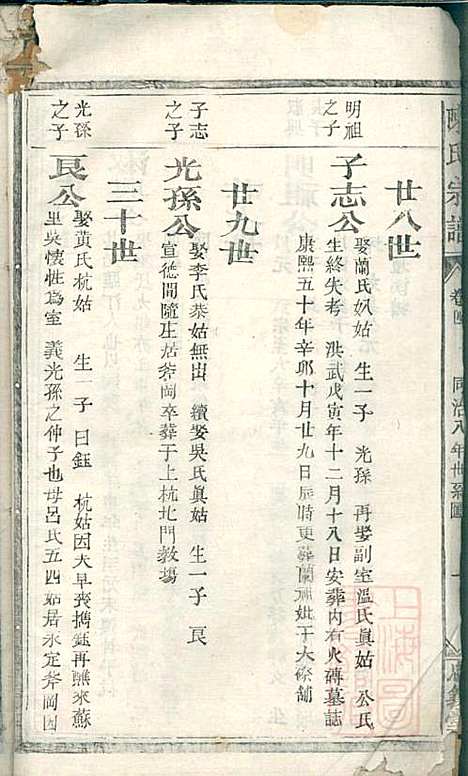 陳氏宗譜
卷四
同治八年世系圖
廿八世
明祖之子
子志公
娶蘭氏㚢姑 生一子 光孫 再娶副室溫氏眞姑 公氏
生終失考 洪武戊寅年十二月十八日安葬內有火磚墓誌
康熙五十年辛卯十月廿九日辰時更葬蘭 妣于大 舖
廿九世
子志之子
光孫公
娶李氏恭姑無出 續娶吳氏眞姑 生一子 艮
宣德間隨庄居斧岡卒葬于上杭北門教塲
三十世
光孫之子
艮公
娶黃氏杭姑 生一子 曰鈺 杭姑因夫早喪携鈺再醮來蘇
里吳懷胜為室 義光孫之仲子也母呂氏五四姑居永定斧岡因
上海圖